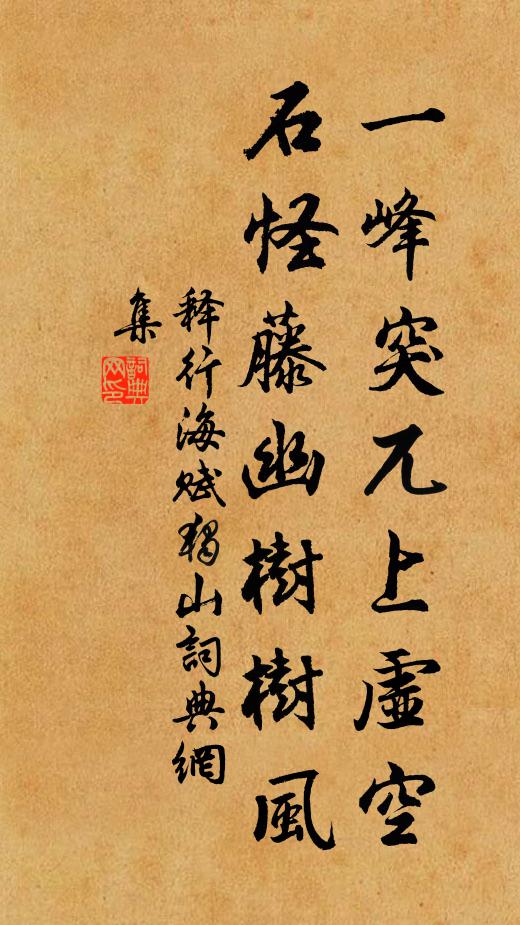 一峰突兀上虛空
石怪藤幽樹樹風
释行海赋獨山詞典網
集
詞典
网印